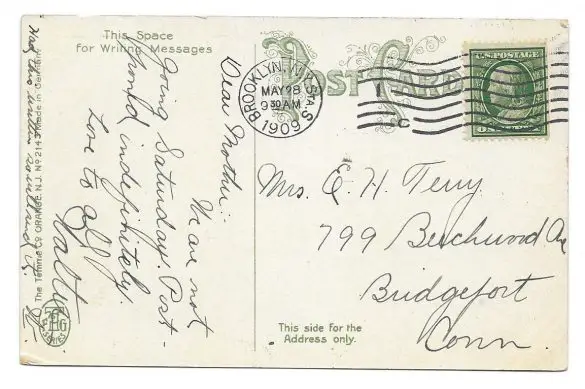 This Space
for Writing Messages
Dear Mother:
We are not
going Saturday. Post-
poned indefinitely.
Love to all
Walter
The Temme Co ORANGE, N.J. No 2143 Made in Germany
POST CARD
BROOKLYN, N.Y.
MAY 28
9 30 AM
1909
STA. S
C
U.S. POSTAGE
Mrs. E. H. Terry
799 Beechwood Ave
Bridgeport
Conn.
This side for the
Address only.